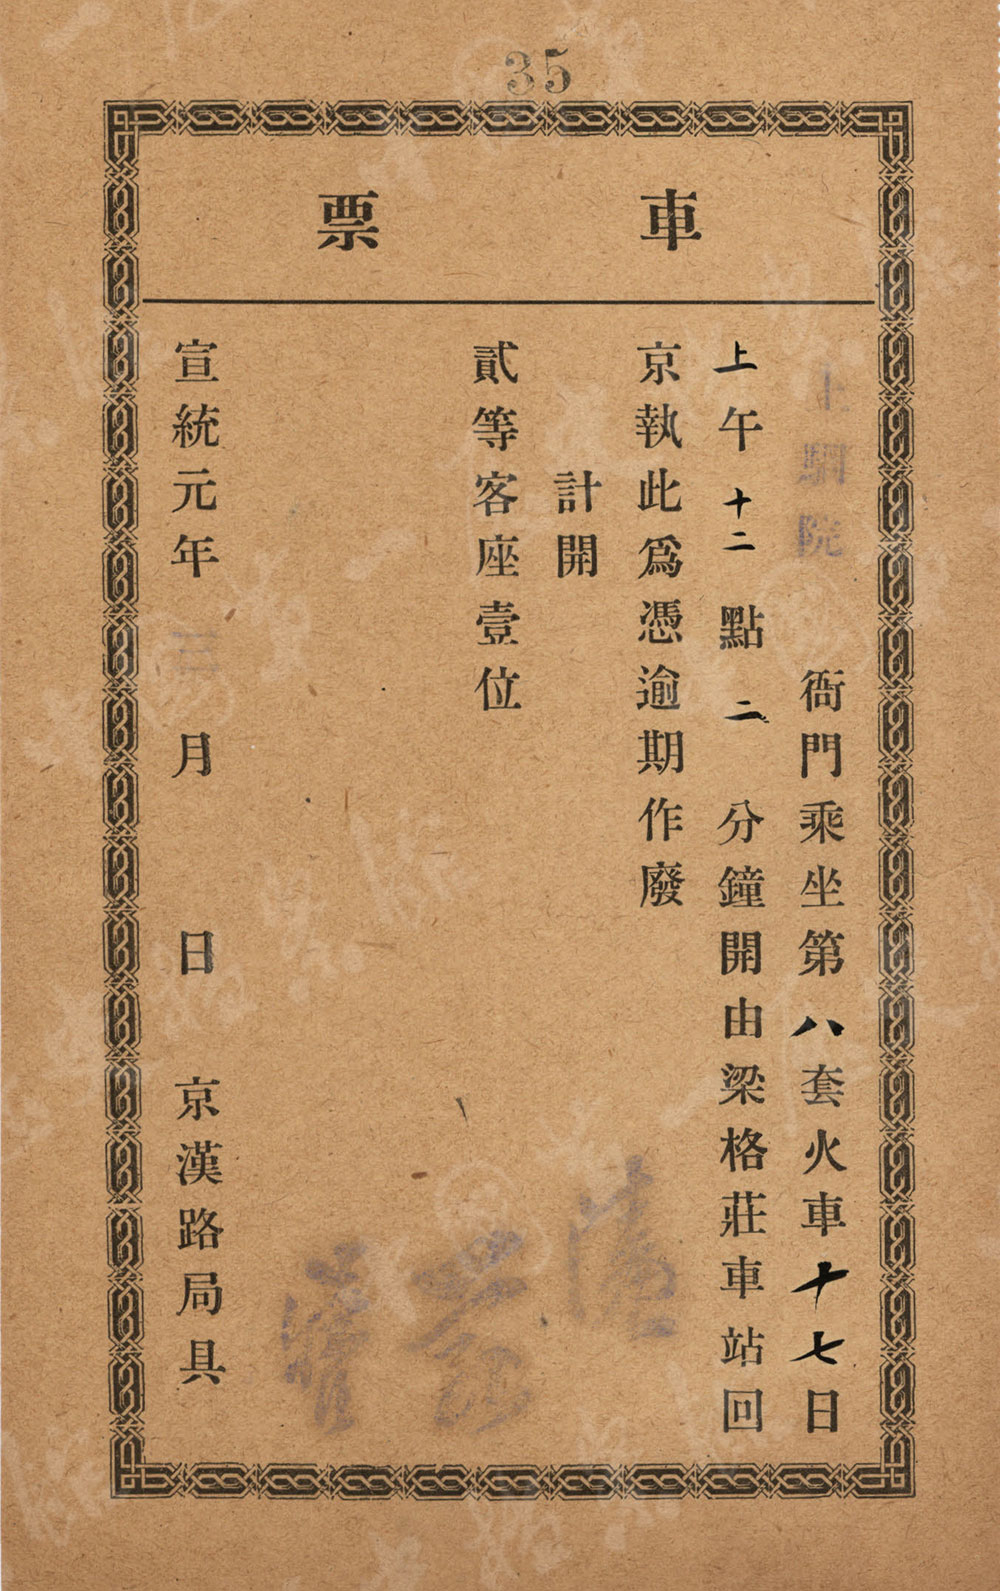 35
車票
上駟院衙門乘坐第八套火車十七日
上午十二點二分鐘開由梁格莊車站回
京執此爲憑逾期作廢
計開
貳等客座壹位
宣統元年三月日京漢路局具